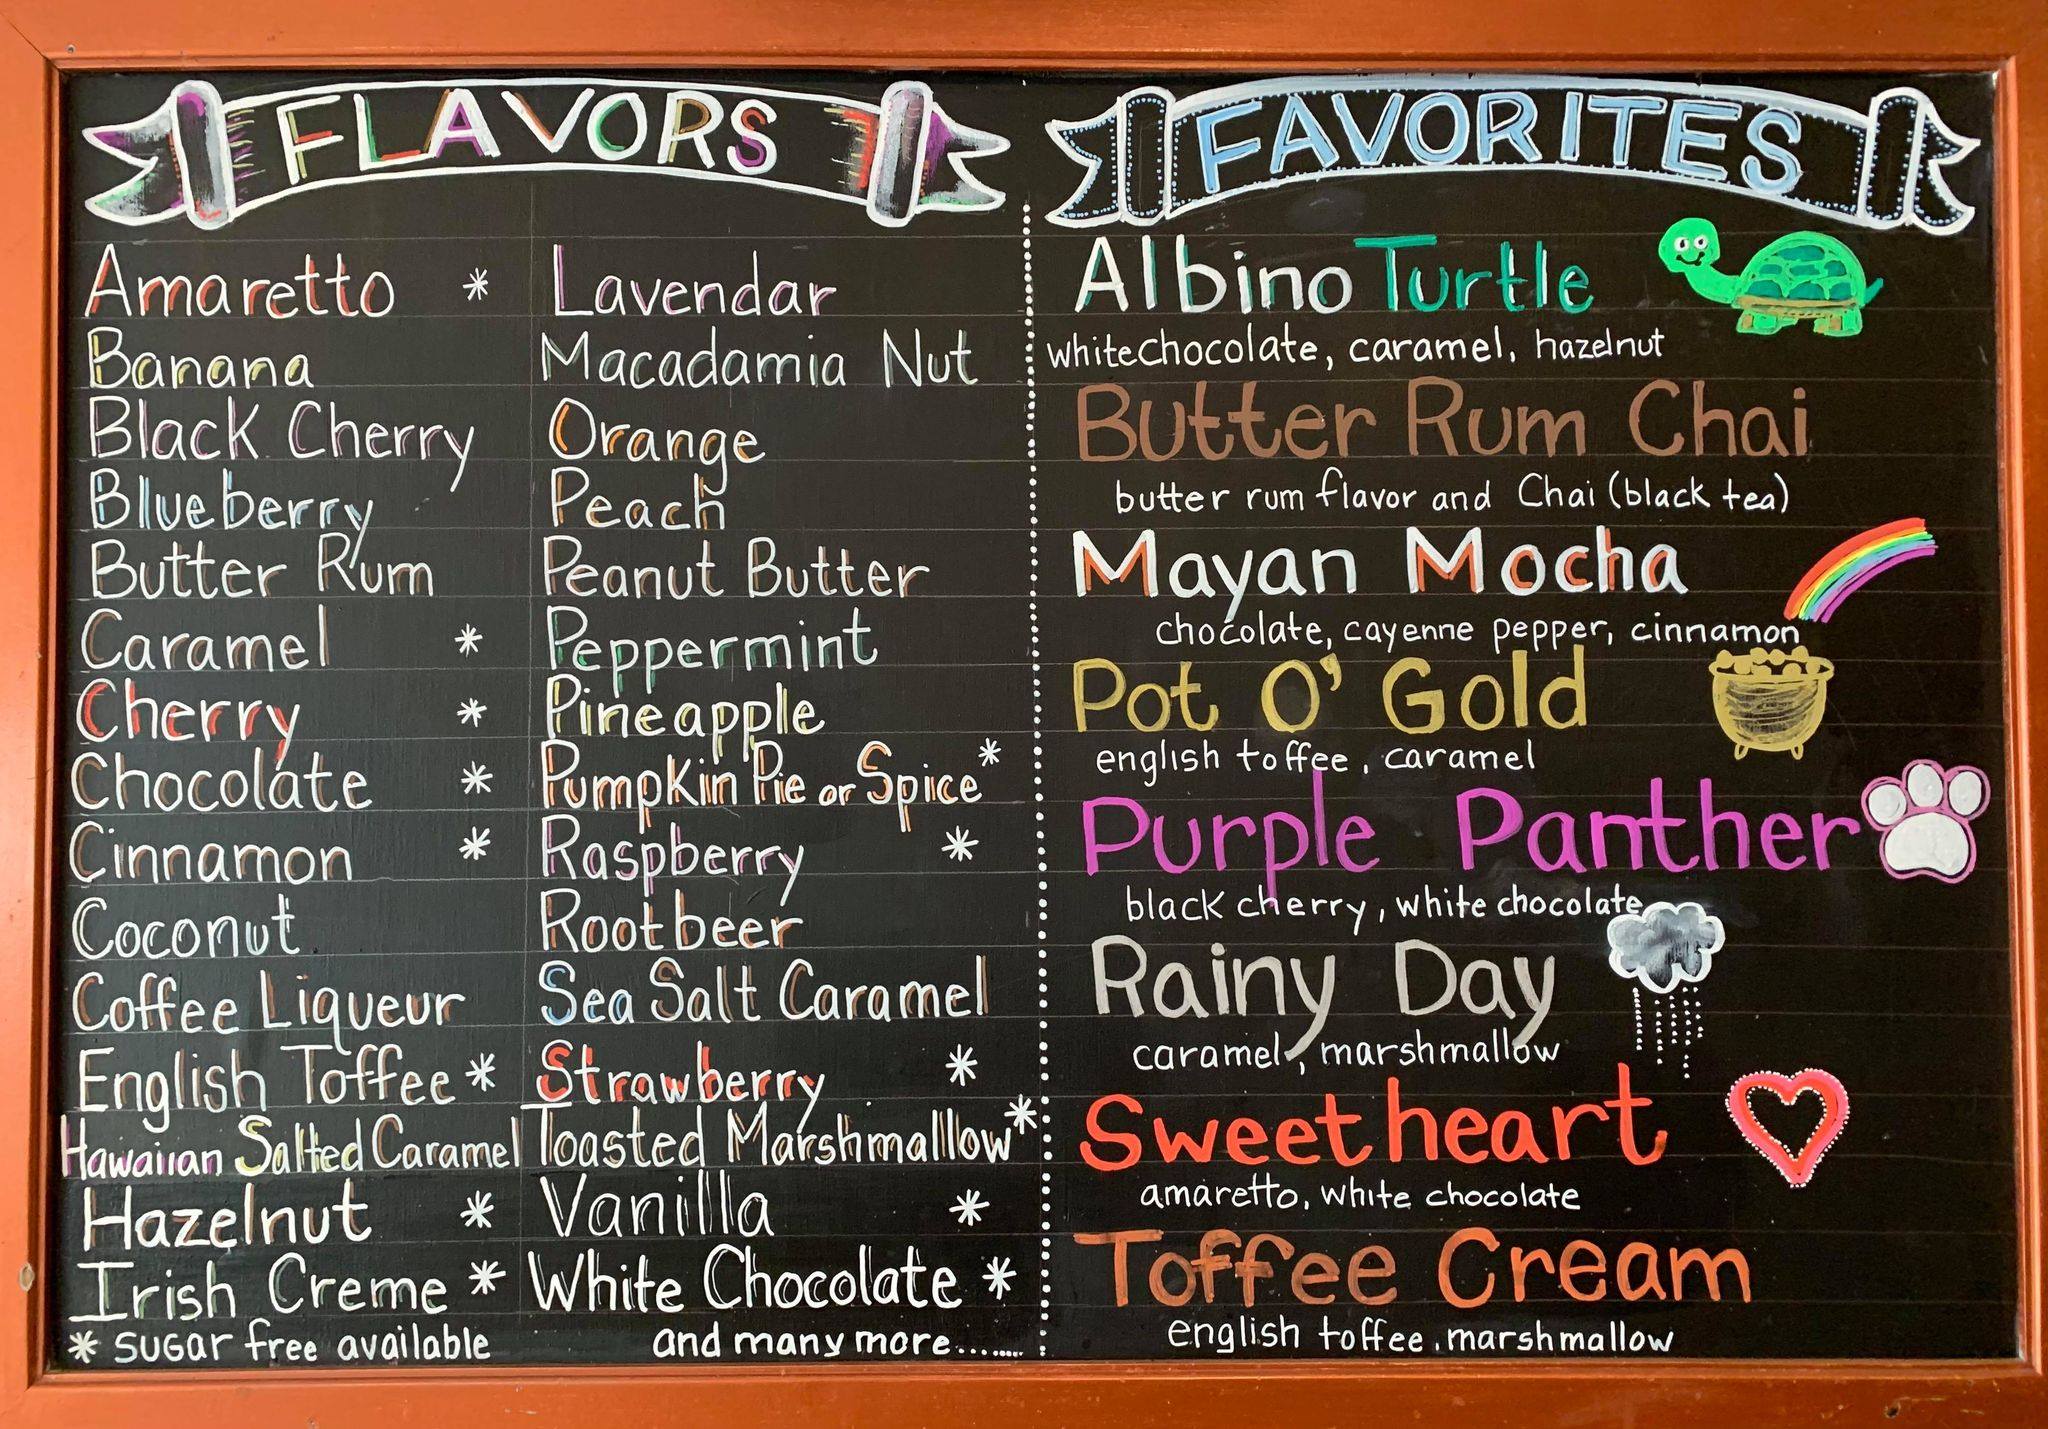 FLAVORS
Amaretto *
Banana
Black Cherry
Blueberry
Butter Rum
Caramel *
Cherry *
Chocolate *
Cinnamon *
Coconut
Coffee Liqueur
English Toffee *
Hawaiian Salted Caramel
Hazelnut *
Irish Creme *
* sugar free available
Lavendar
Macadamia Nut
Orange
Peach
Peanut Butter
Peppermint
Pineapple
Pumpkin Pie or Spice *
Raspberry *
Rootbeer
Sea Salt Caramel
Strawberry *
Toasted Marshmalllow *
Vanilla *
White Chocolate *
and many more.......
FAVORITES
Albino Turtle
white chocolate, caramel, hazelnut
Butter Rum Chai
butter rum flavor and Chai (black tea)
Mayan Mocha
chocolate, cayenne pepper, cinnamon
Pot O' Gold
english toffee, caramel
Purple Panther
black cherry, white chocolate
Rainy Day
caramel, marshmallow
Sweetheart
amaretto, white chocolate
Toffee Cream
english toffee, marshmallow